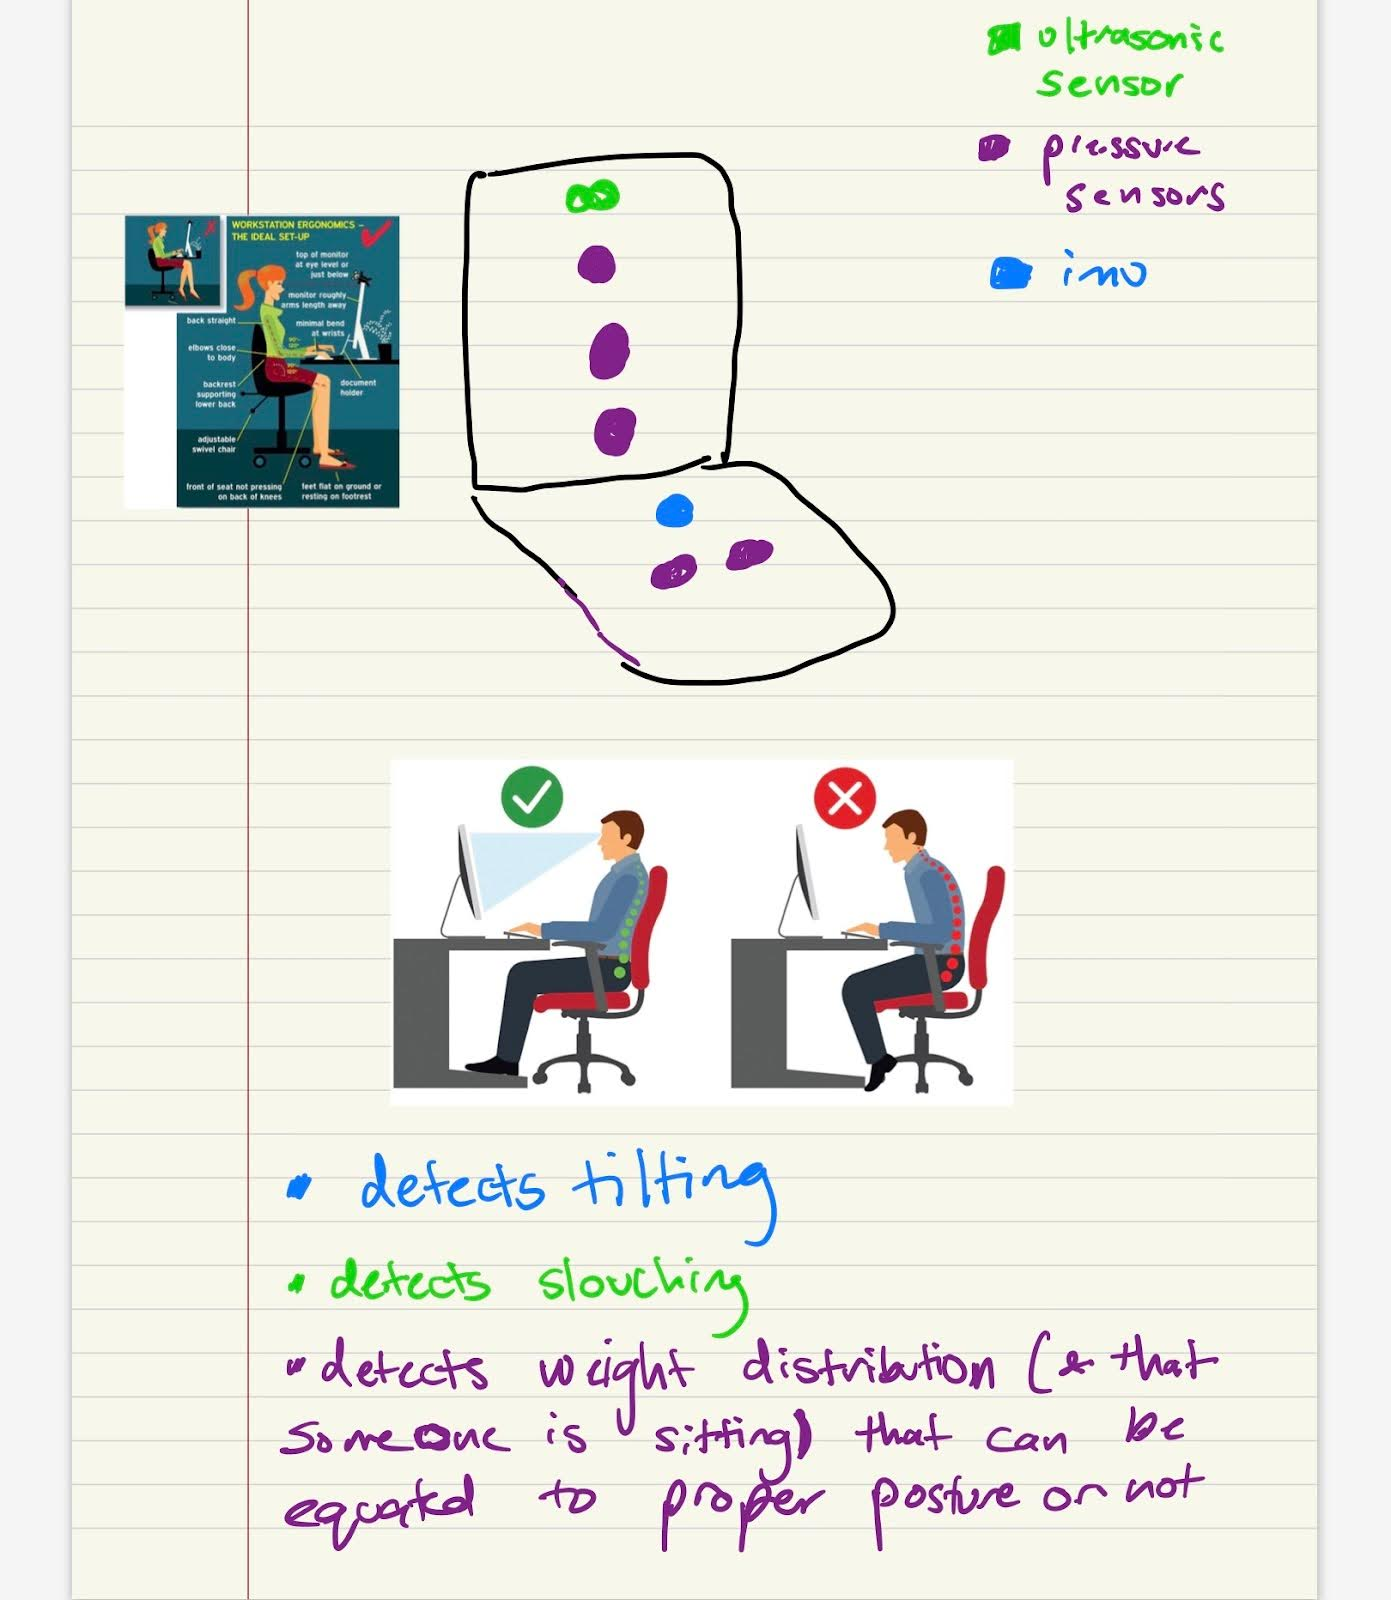 ultrasonic
sensor
pressure
sensors
imu
WORKSTATION ERGONOMICS –
THE IDEAL SET-UP
top of monitor
at eye level or
just below
monitor roughly
arms length away
back straight
minimal bend
at wrists
elbows close
to body
90°-
120°
90°-
120°
backrest
supporting
lower back
document
holder
adjustable
swivel chair
front of seat not pressing
on back of knees
feet flat on ground or
resting on footrest
• detects tilting
• detects slouching
• detects weight distribution (& that
someone is sitting) that can be
equated to proper posture or not